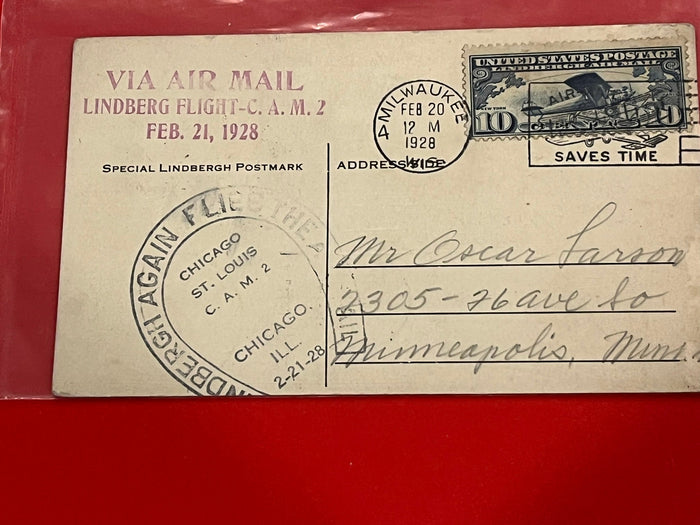 VIA AIR MAIL
LINDBERG FLIGHT-C. A. M. 2
FEB. 21, 1928
SPECIAL LINDBERGH POSTMARK
MILWAUKEE
FEB 20
12 M
1928
WIS.
UNITED STATES POSTAGE
LINDBERGH AIR MAIL
10
AIR
SAVES TIME
ADDRESS SIDE
LINDBERGH AGAIN FLIES THE AIR MAIL
CHICAGO
ST. LOUIS
C. A. M. 2
CHICAGO.
ILL.
2-21-28
Mr Oscar Larson
2305-26 ave So
Minneapolis, Minn.